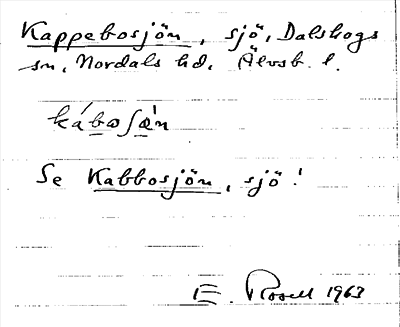 Kappebosjön, sjö, Dalskogs
sn, Nordals hd, Älvsb. l.
kábωʃæ̀n
Se Kabbosjön, sjö!
E. Rosell 1963